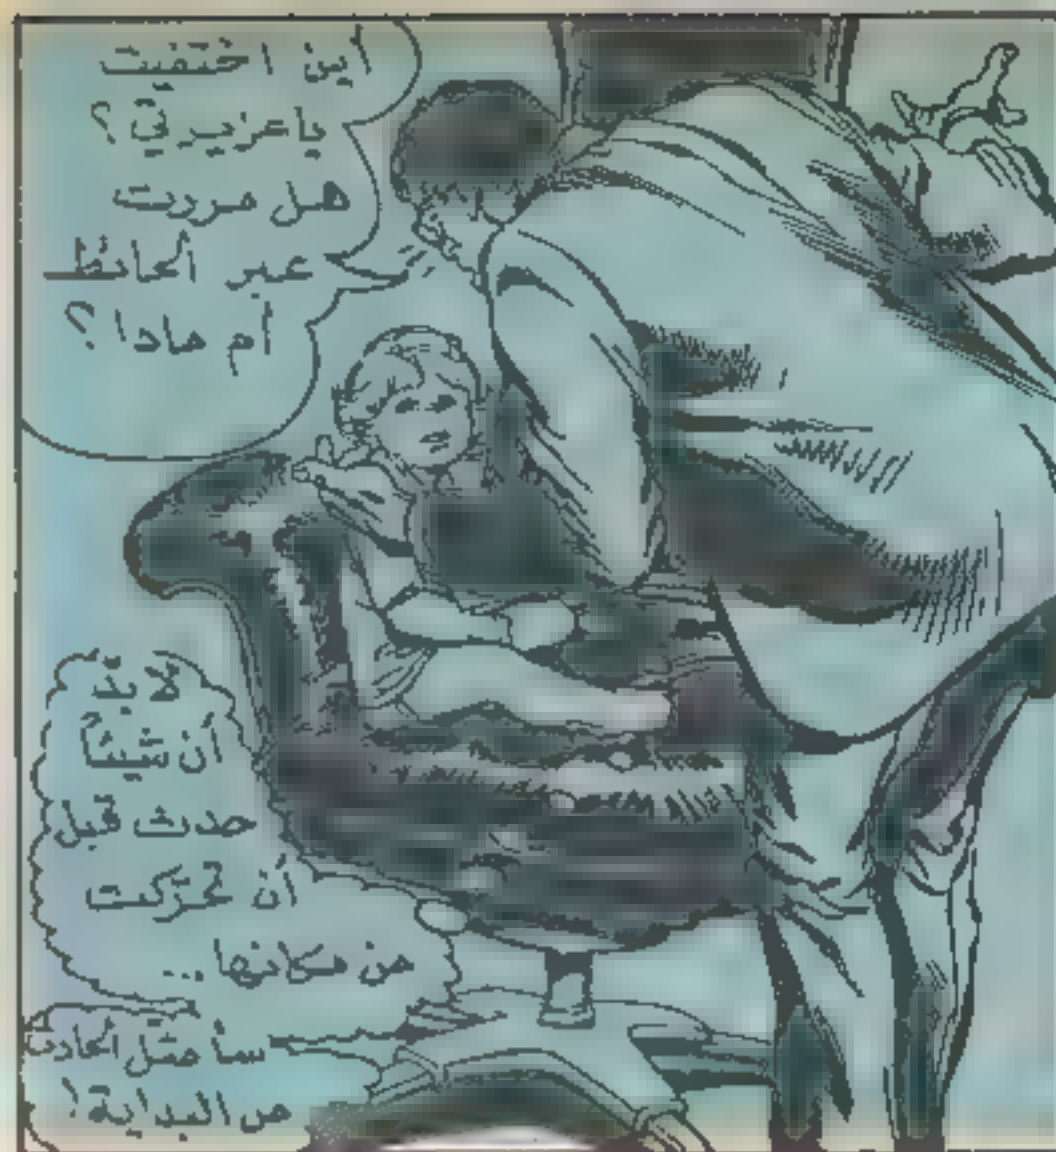 أين اختفيت
ياعزيزتي؟
هل مررت
عبر الحائط
أم ماذا؟
لا بد
أن شيئاً
حدث قبل
أن تحركت
من مكانها...
سأمثل الحادث
من البداية!